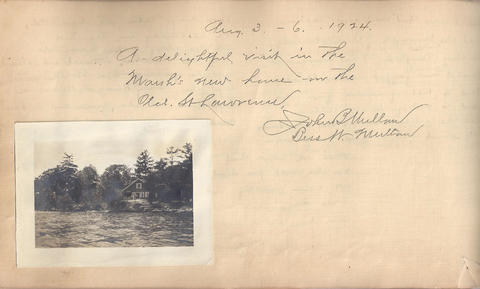 Aug. 3 - 6. 1924.
A delightful visit in the
Marsh's new home on the
Old St Lawrence.
John B Mullan
Bess W. Mullan